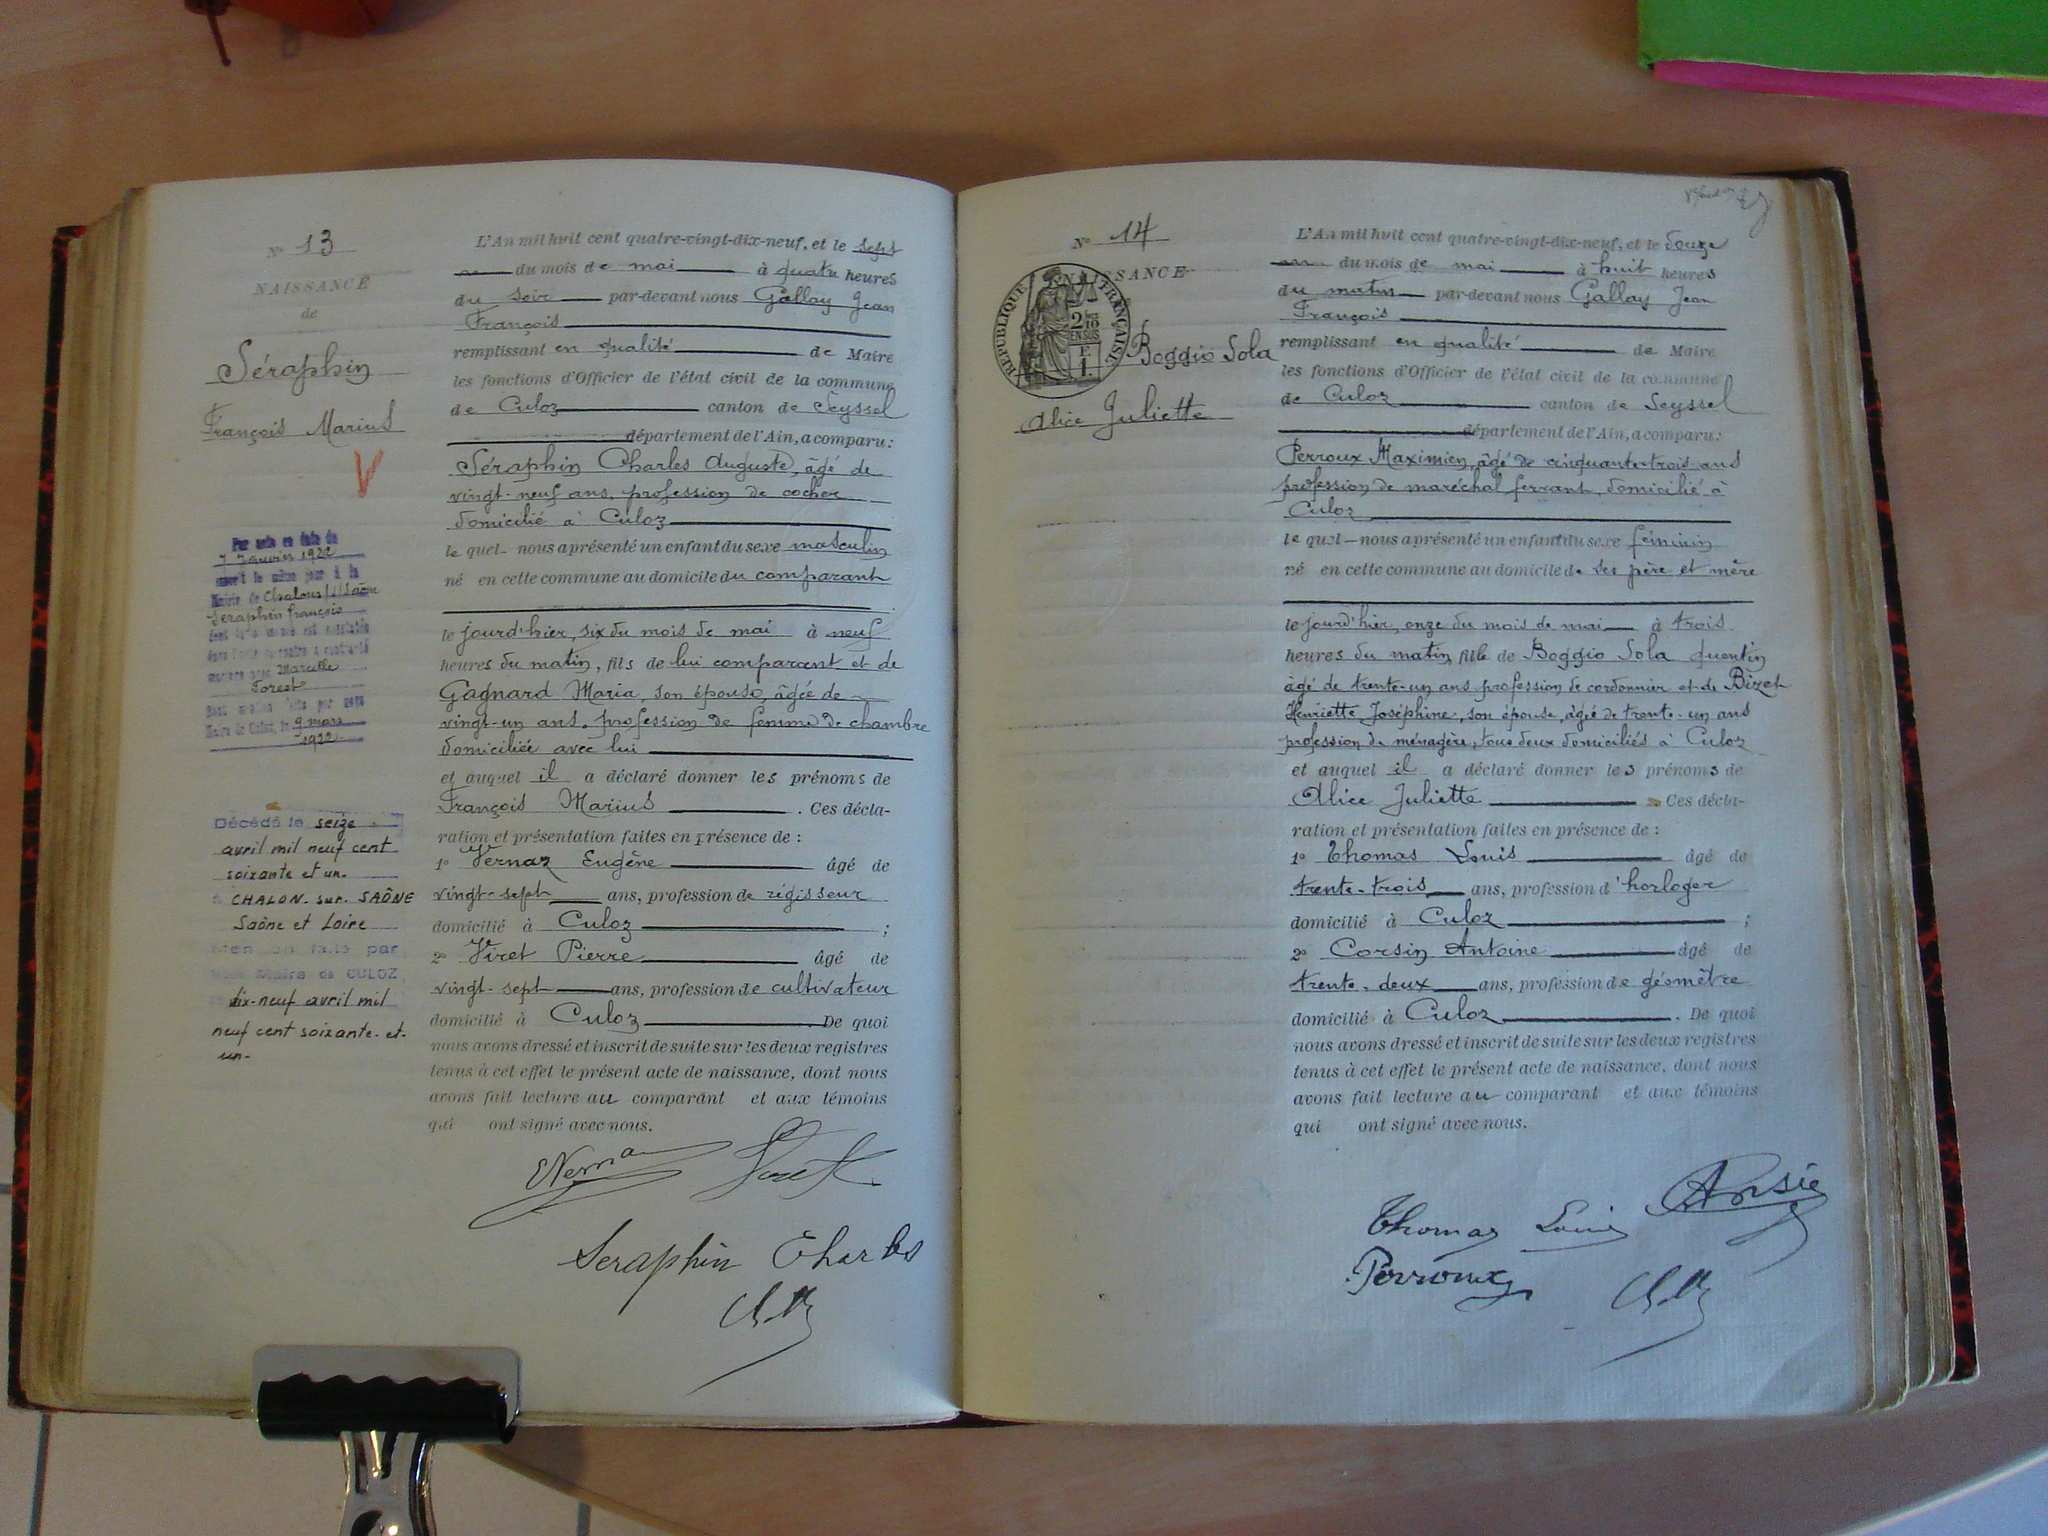 N° 13
NAISSANCE
de
Séraphin
François Marius
Par acte en date du
7 Janvier 1922
Mairie de Chalons s/ Saône
Seraphin François
Marcelle
Forest
Maire de Culoz, le 9 mars
1922
Décédé le seize
avril mil neuf cent
soixante et un
à CHALON-sur-SAÔNE
Saône et Loire
Mention faite par
nous Maire de CULOZ
dix-neuf avril mil
neuf cent soixante-et-
un-
L'An mil huit cent quatre-vingt-dix-neuf, et le sept
du mois de mai à quatre heures
du soir par-devant nous Gallay Jean
François
remplissant en qualité de Maire
les fonctions d'Officier de l'état civil de la commune
de Culoz canton de Seyssel
département de l'Ain, a comparu :
Séraphin Charles Auguste, âgé de
vingt-neuf ans, profession de cocher
domicilié à Culoz
le quel nous a présenté un enfant du sexe masculin
né en cette commune au domicile du comparant
le jourd'hier, six du mois de mai à neuf
heures du matin, fils de lui comparant et de
Gagnard Maria, son épouse, âgée de
vingt-un ans, profession de femme de chambre
domiciliée avec lui
et auquel il a déclaré donner les prénoms de
François Marius . Ces décla-
ration et présentation faites en présence de :
1° Vernaz Eugène âgé de
vingt-sept ans, profession de régisseur
domicilié à Culoz ;
2° Viret Pierre âgé de
vingt-sept ans, profession de cultivateur
domicilié à Culoz . De quoi
nous avons dressé et inscrit de suite sur les deux registres
tenus à cet effet le présent acte de naissance, dont nous
avons fait lecture au comparant et aux témoins
qui ont signé avec nous.
EVernaz Viret
Seraphin Charles
N° 14
NAISSANCE
RÉPUBLIQUE FRANÇAISE
2 /10
EN SUS
E
1.
Boggio Sola
Alice Juliette
L'An mil huit cent quatre-vingt-dix-neuf, et le douze
du mois de mai à huit heures
du matin par-devant nous Gallay Jean
François
remplissant en qualité de Maire
les fonctions d'Officier de l'état civil de la commune
de Culoz canton de Seyssel
département de l'Ain, a comparu :
Perroux Maximien, âgé de cinquante-trois ans
profession de maréchal ferrant, domicilié à
Culoz
le quel nous a présenté un enfant du sexe féminin
né en cette commune au domicile de ses père et mère
le jourd'hier, onze du mois de mai à trois
heures du matin, fille de Boggio Sola Quentin
âgé de trente-un ans profession de cordonnier et de Bizet
Henriette Joséphine, son épouse, âgée de trente-un ans
profession de ménagère, tous deux domiciliés à Culoz
et auquel il a déclaré donner les prénoms de
Alice Juliette Ces décla-
ration et présentation faites en présence de :
1° Thomas Louis âgé de
trente-trois ans, profession d'horloger
domicilié à Culoz ;
2° Corsin Antoine âgé de
trente-deux ans, profession de géomètre
domicilié à Culoz . De quoi
nous avons dressé et inscrit de suite sur les deux registres
tenus à cet effet le présent acte de naissance, dont nous
avons fait lecture au comparant et aux témoins
qui ont signé avec nous.
Thomas Louis
Perroux